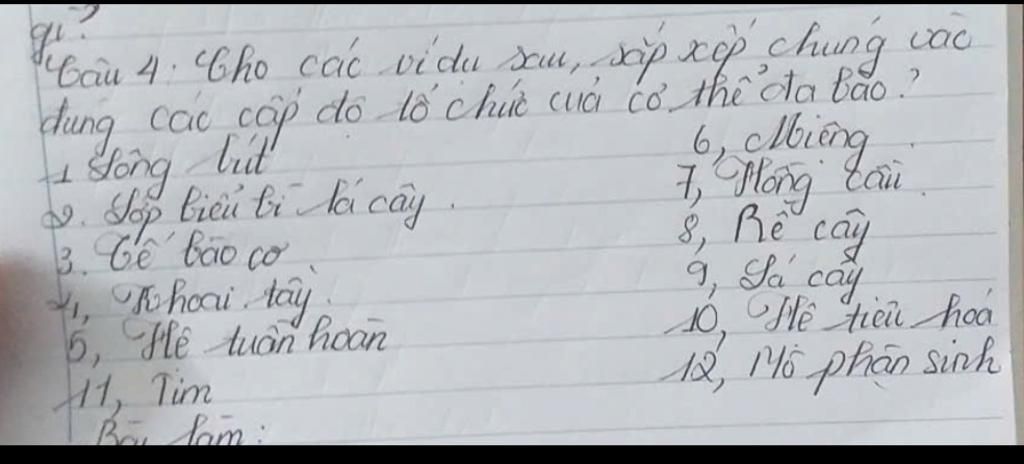 gì?
Câu 4: Cho các ví dụ sau, sắp xếp chúng vào
đúng các cấp độ tổ chức của cơ thể đa bào?
1 Lông hút
2. Lớp biểu bì lá cây.
3. Tế bào cơ
4, Khoai tây.
5, Hệ tuần hoàn
11, Tim
6, Miệng.
7, Hồng cầu.
8, Rễ cây
9, Lá cây
10, Hệ tiêu hoá
12, Mô phân sinh
Bài làm: